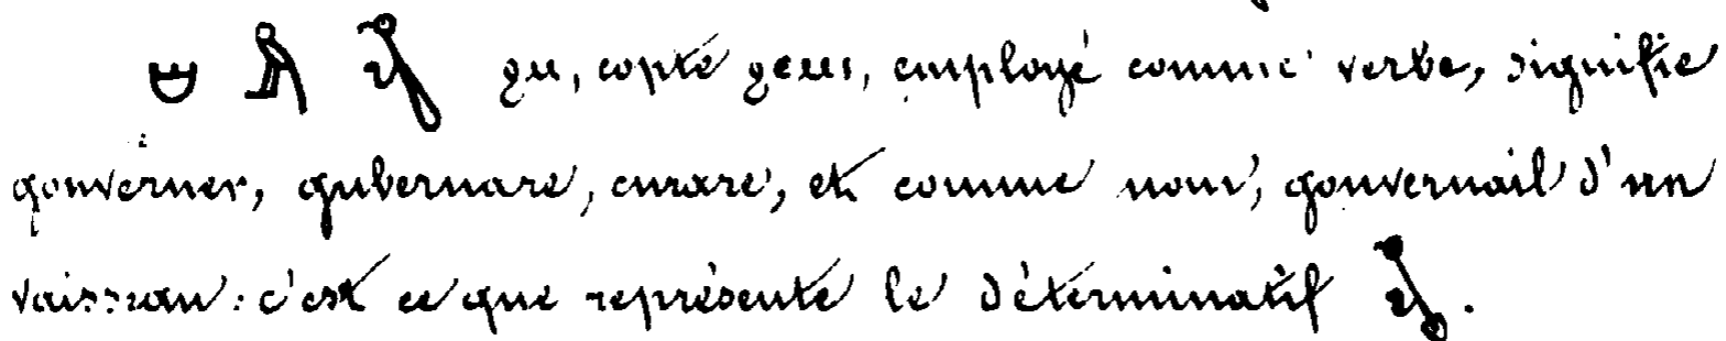 ϩⲙ, copte ϩⲉⲙⲓ, employé comme verbe, signifie
gouverner, gubernare, curare, et comme nom, gouvernail d'un
vaisseau: c'est ce que représente le déterminatif .